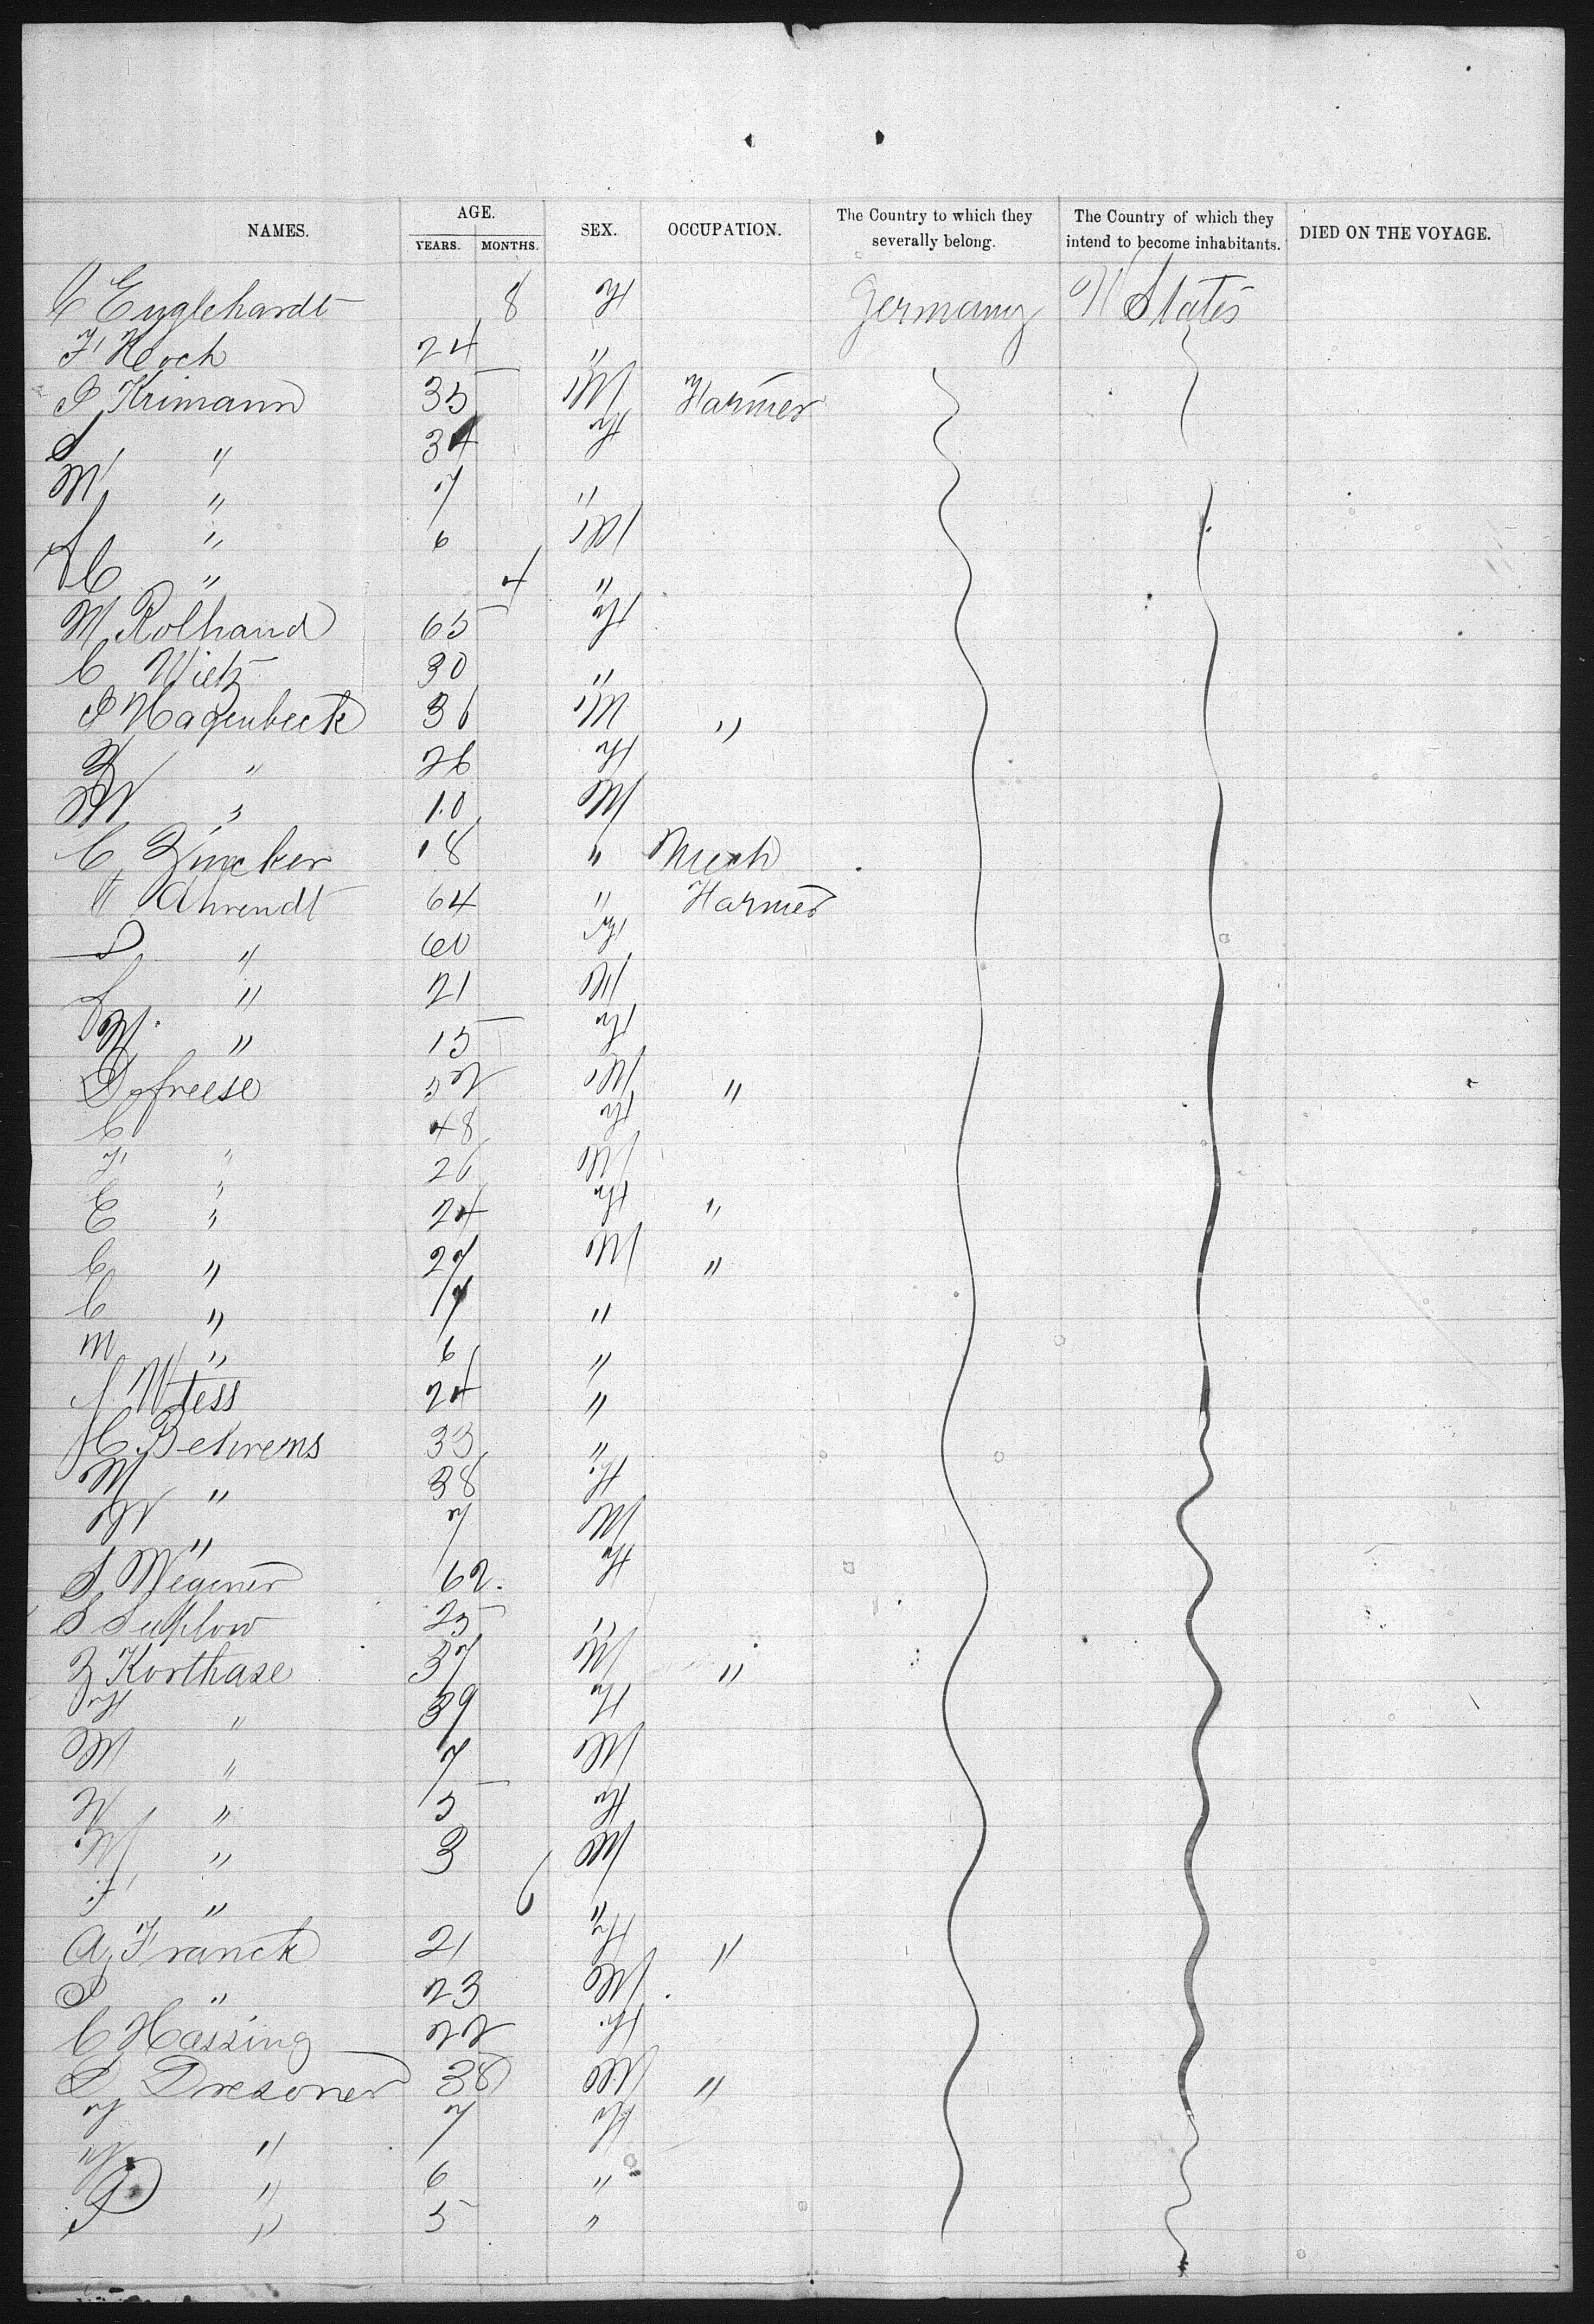 NAMES. AGE. YEARS. MONTHS. SEX. OCCUPATION. The Country to which they severally belong. The Country of which they intend to become inhabitants. DIED ON THE VOYAGE.
C Englehardt 8 F Germany U States
F Koch 24 "
P Krimann 35 M Farmer
S " 34 F
M " 7 "
L " 6 M
C " 4 "
M Rolhand 65 F
C Wietz 30 "
P Hagenbeck 36 M "
" 26 F
W " 10 M
C Zincker 18 " Mech
Ahrendt 64 " Farmer
S " 60 F
L " 21 M
M " 15 F
D Defreese 52 M "
C " 48 F
F " 26 M
E " 24 F "
C " 27 M "
C " 7 "
M " 6 "
J Wess 24 "
C Behrens 33 "
M " 38 F
W " 7 M
S Wegener 62 F
S Suhlow 25 "
Z Korthase 37 M "
F " 39 F
M " 7 M
W " 5 F
M " 3 M
F " 6 "
A Franck 21 F "
P " 23 M
C Hassing 22 F
D Dresoner 38 M "
F " 7 F
" 6 "
" 5 "